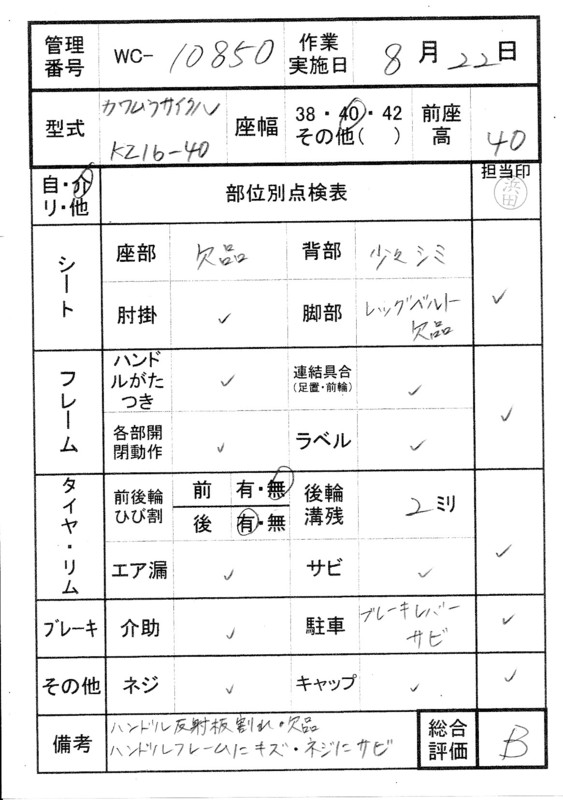 管理番号 WC- 10850 作業実施日 8月22日
型式 カワムラサイクル KZ16-40 座幅 38・40・42 その他( ) 前座高 40
自・介 リ・他 部位別点検表 担当印 浜田
シート 座部 欠品 背部 少々シミ ✓
肘掛 ✓ 脚部 レッグベルト欠品
フレーム ハンドルがたつき ✓ 連結具合 (足置・前輪) ✓ ✓
各部開閉動作 ✓ ラベル ✓
タイヤ・リム 前後輪ひび割 前 有・無 後輪溝残 2ミリ ✓
後 有・無
エア漏 ✓ サビ ✓
ブレーキ 介助 ✓ 駐車 ブレーキレバーサビ ✓
その他 ネジ ✓ キャップ ✓ ✓
備考 ハンドル反射板割れ・欠品
ハンドルフレームにキズ・ネジにサビ
総合評価 B